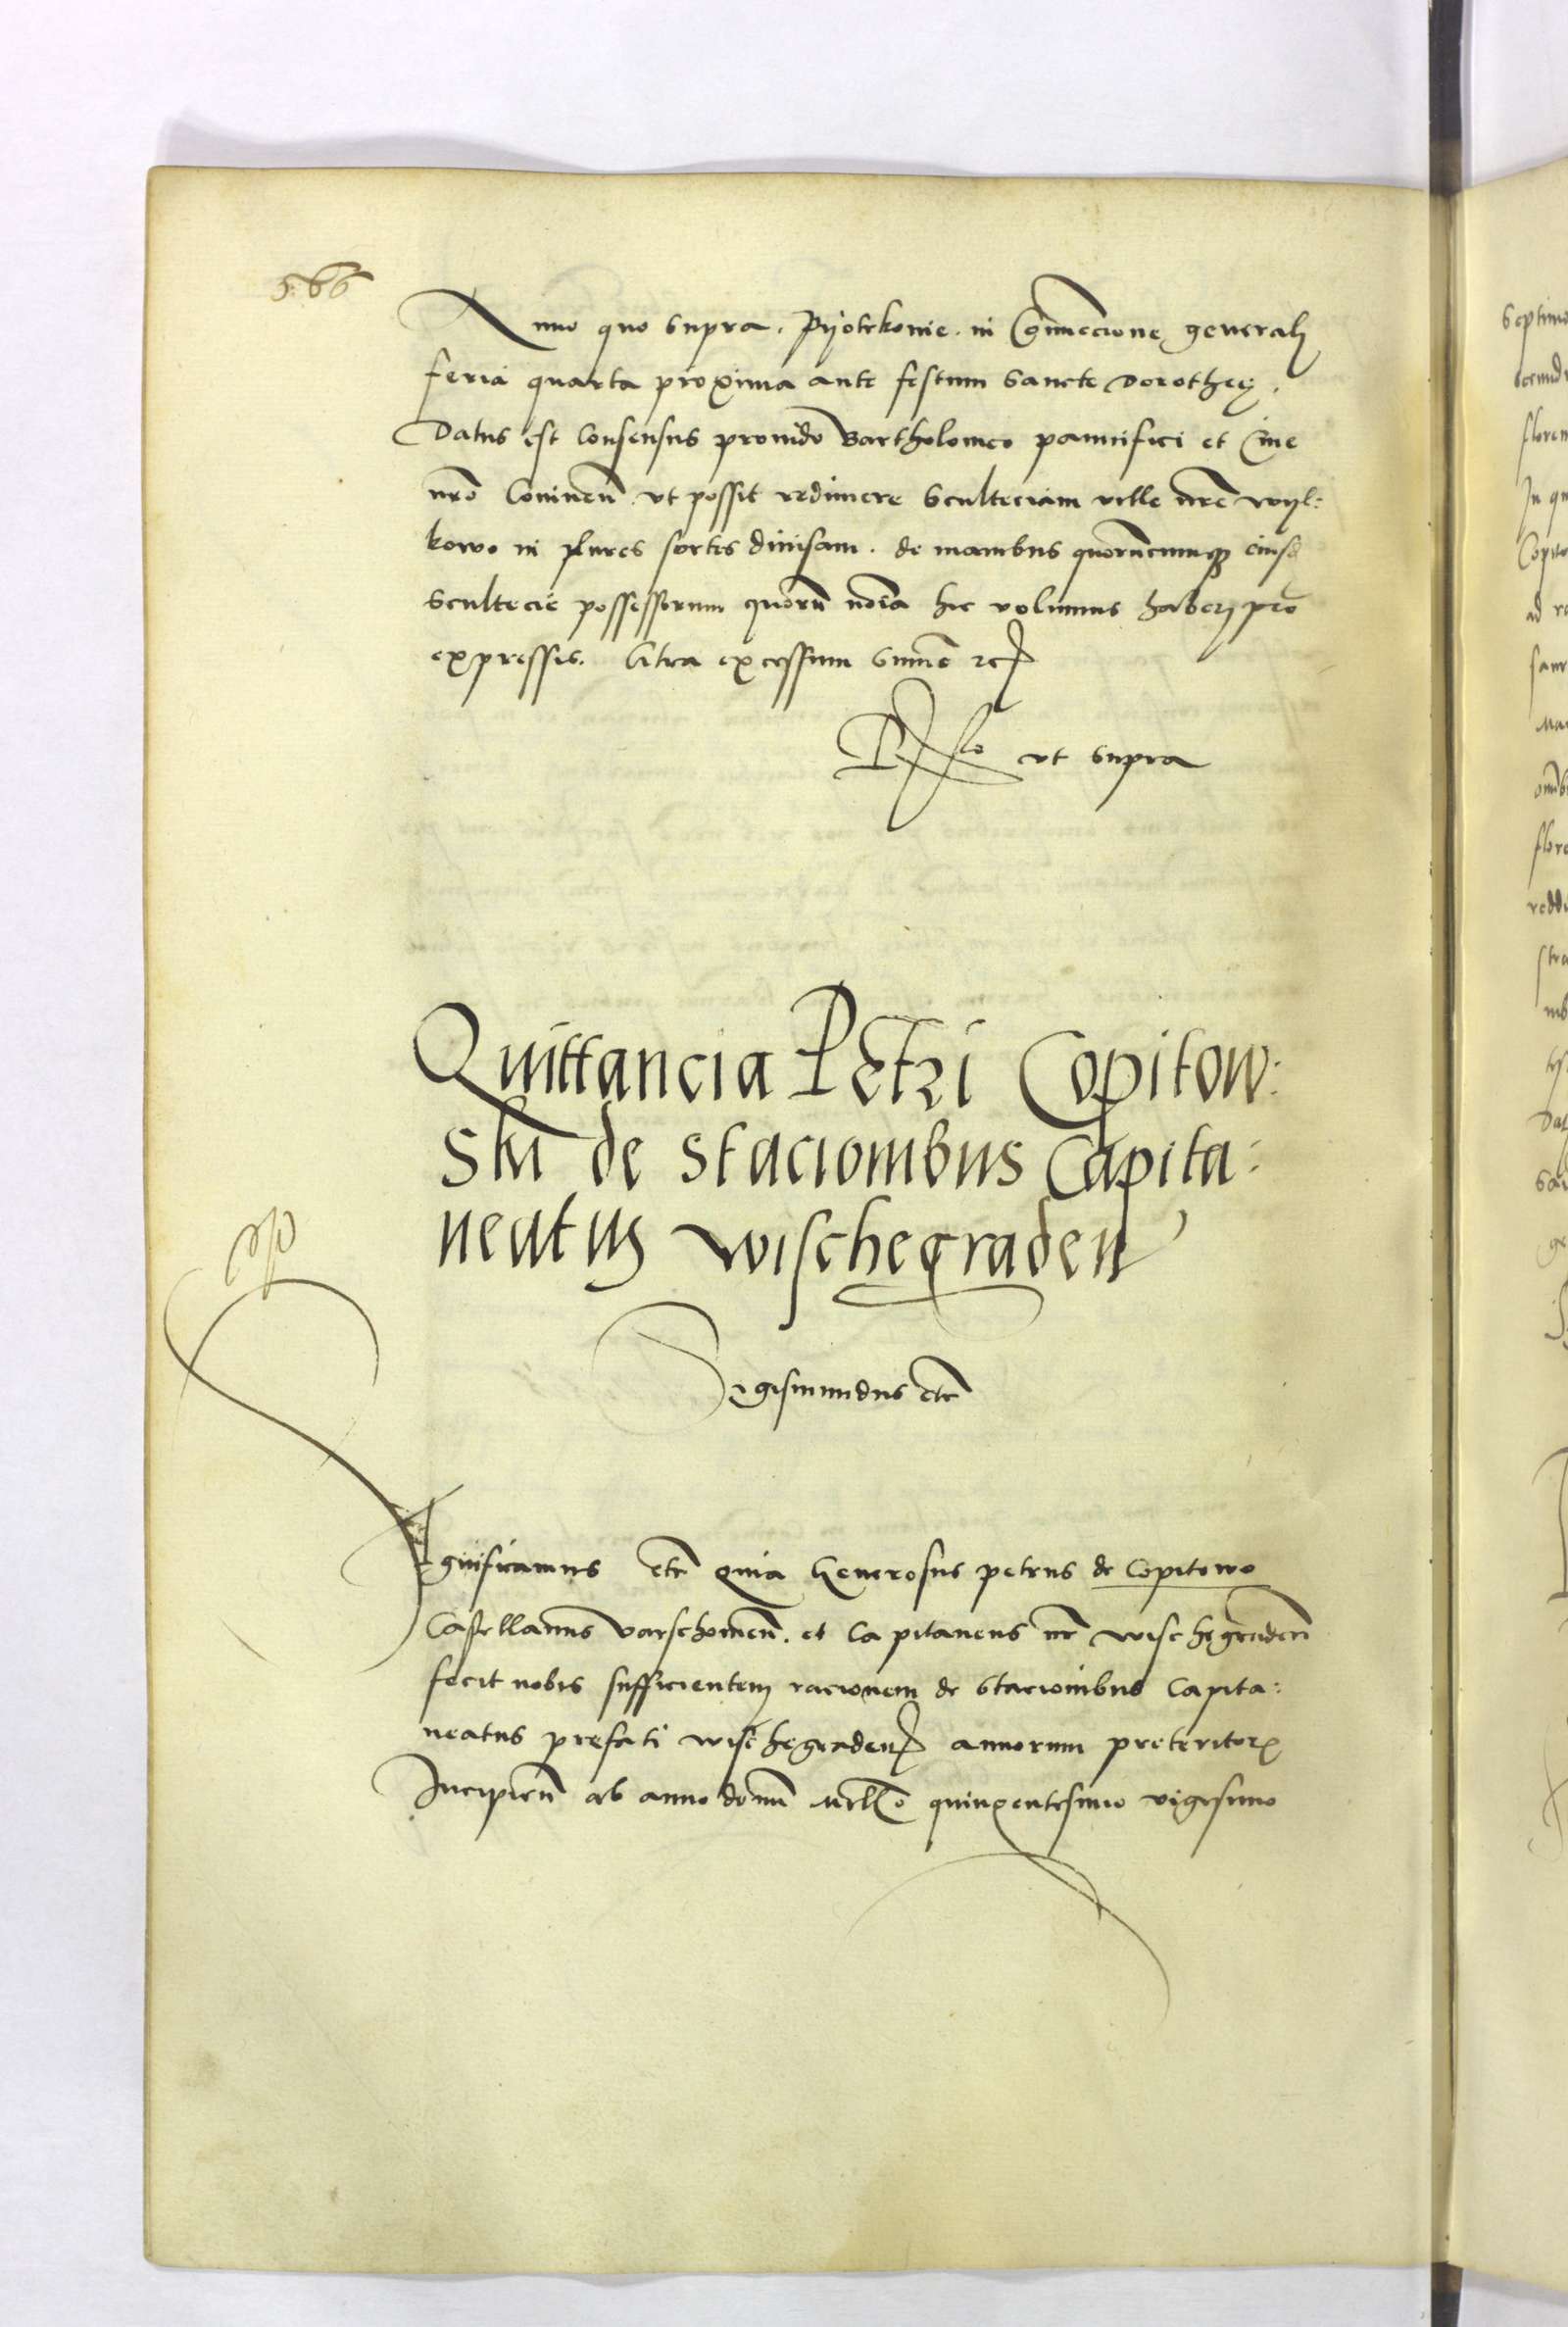 566
Anno quo supra. Pyotrkouie. in Conuecione generalj
feria quarta proxima ante festum Sancte Dorotheę.
Datus est Consensus prouido Bartholomeo pannifici et Ciue
nrō Coninen̄ vt possit redimere Sculteciam ville nr̄e wyl:
kowo in plures sortes diuisam. de manibus quorūcumqȝ eiusd
Scultecie possessorum quorū noīa hic volumus haberj pro
expressis. Citra excessum Sum̄e rc
ut supra
Quittancia Petri Copitow:
ski de stacionibus Capita:
neatus wischegraden
Sigismundus etc
Significamus etc Quia Generosus petrus de Copitowo
Castellanus varschouien̄. et Capitaneus nr̄ wischegraden̄
fecit nobis sufficientem racionem de Stacionibus Capita:
neatus prefati wischegraden̄ annorum preteritorꝫ
Incipien̄ ab anno domī Mill̄o quingentesimo vigesimo